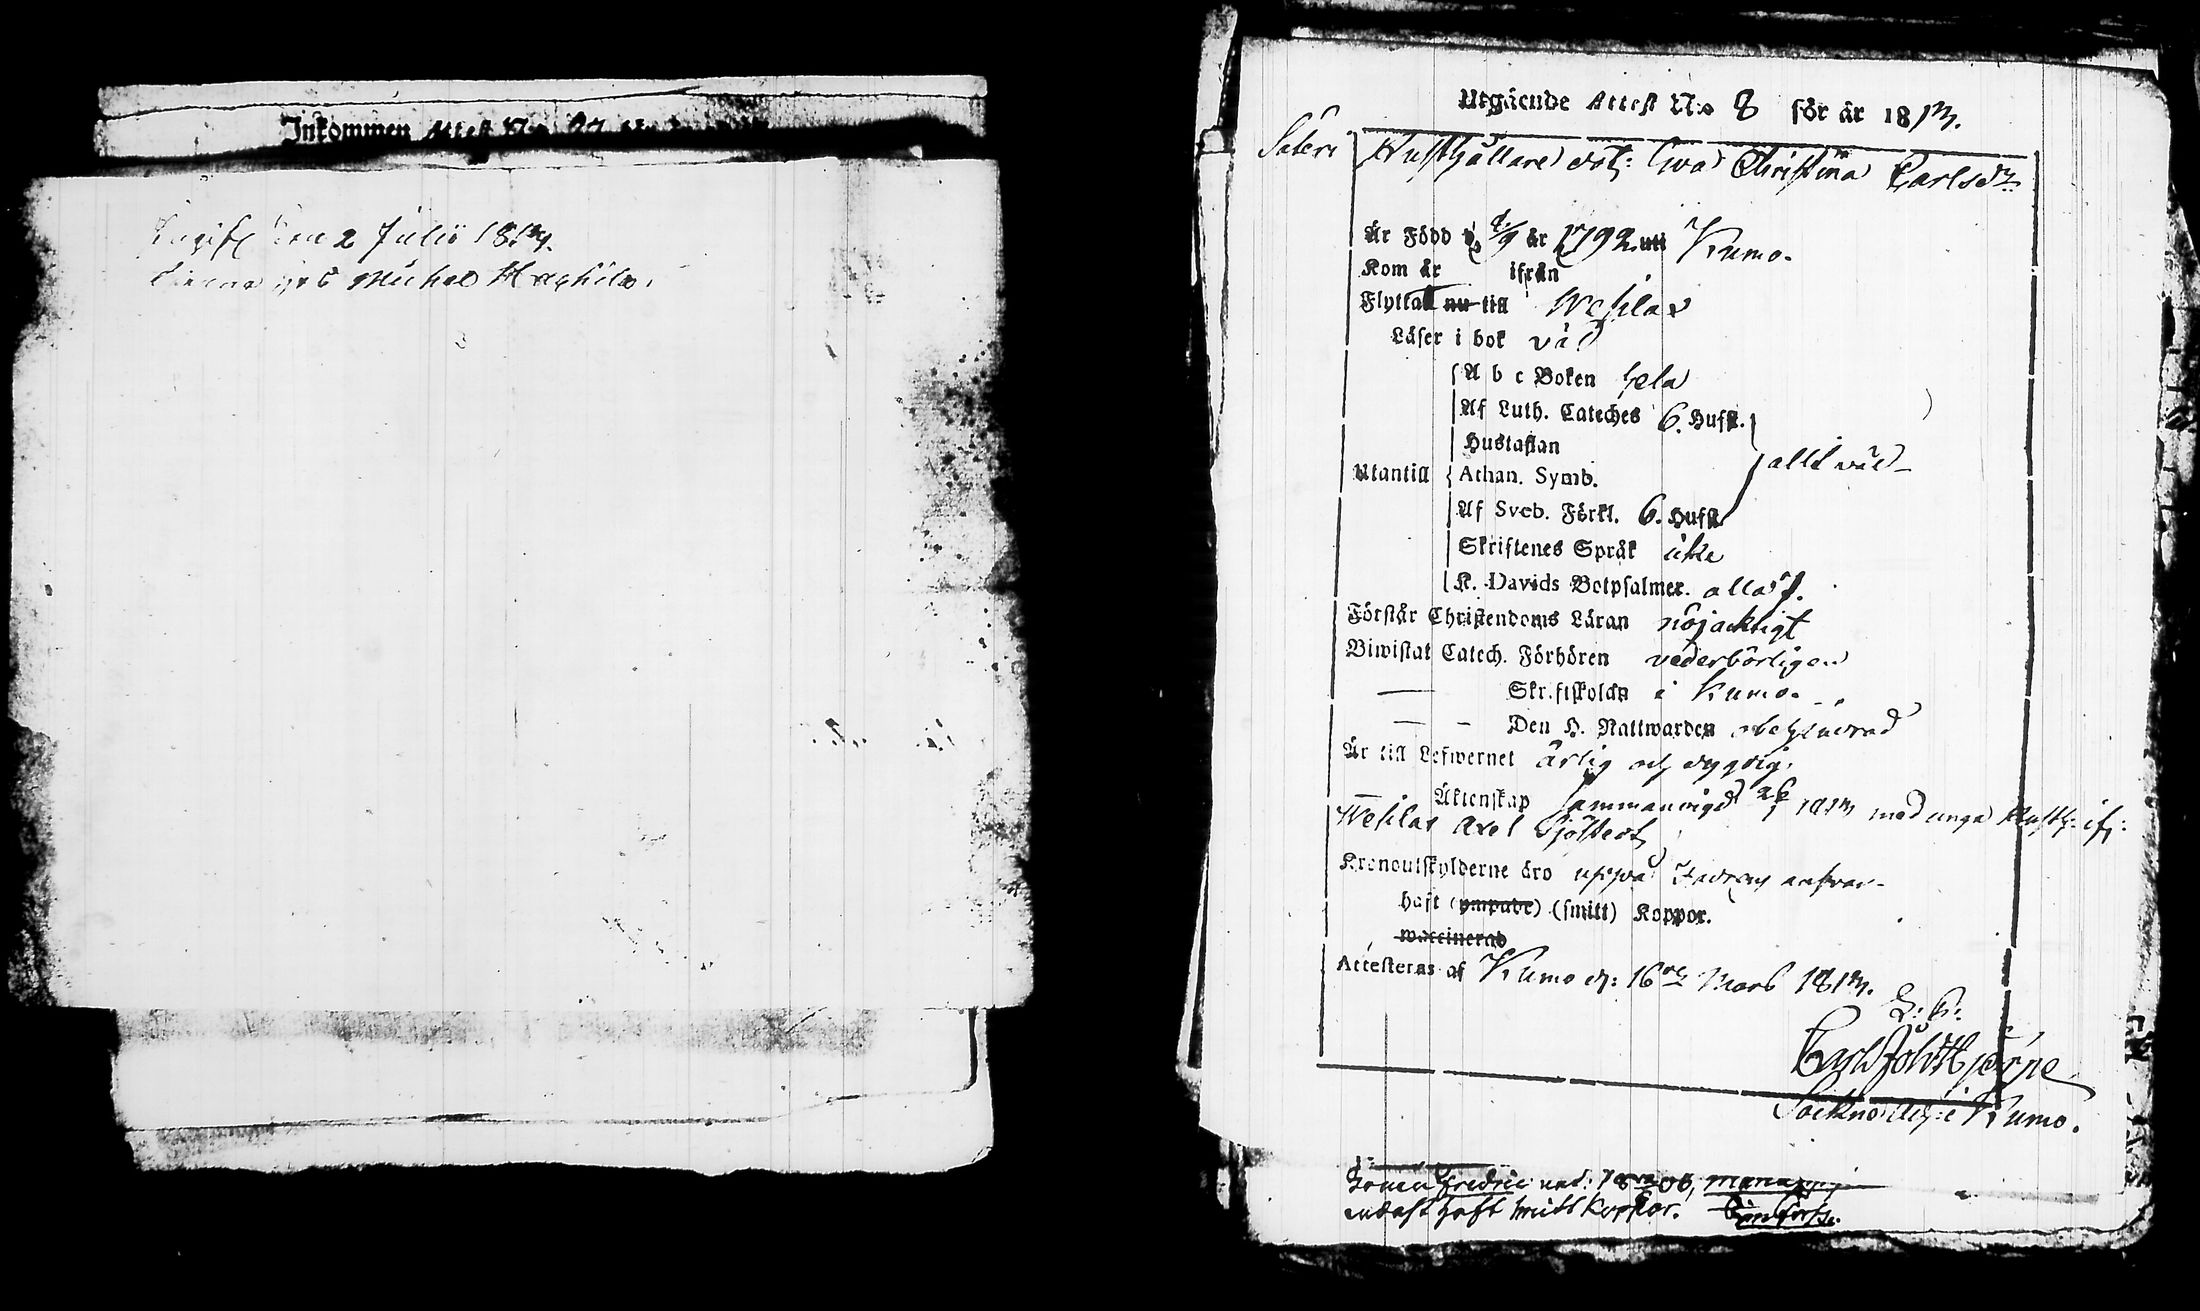 Inkommen Attest N:o 27
Ingift den 2 Julii 1817.
Michel Haghila.
Utgående Attest N:o 8 för år 1817.
Säteri Rusthållare dot: Eva Christina Carlsdr
Är Född d. 4/9 år 1792 uti Kumo.
Kom år ifrån
Flyttat nu till Wesilax
Läser i bok väl
A b c Boken hela
Af Luth. Cateches 6. Hufst.
Hustaflan
allt väl
Utantill Athan. Symb.
Af Sveb. Förkl. 6. Hufst.
Skriftenes Språk icke
K. Davids Botpsalmer. alla 7.
Förstår Christendoms Läran nöjacktigt
Biwistat Catech. Förhören vederbörligen
— Skriftskolan i Kumo.
— — Den H. Nattwarden obehindrad
Är till Lefwernet ärlig och dygdig.
Äktenskap Sammanvigd 1817 med unga Rusth: ifr:
Wesilax Axel Sjöstedt
Kronoutskylderne äro uppå Fadrens answar
haft (ympade) (smitt) Koppor.
waccinerad
Attesteras af Kumo d: 16de Mars 1817.
Carl Joh Hjörne
i Kumo.
Fredric nat: 1806,
endast haft smitt koppor.